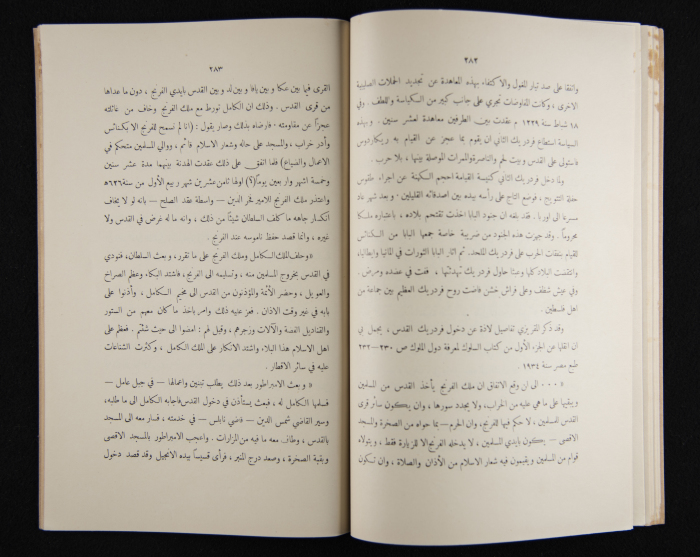 ٢٨٢
واتفقا على صد تيار المغول والاكتفاء بهذه المعاهدة عن تجديد الحملات الصليبية
الاخرى ، وكانت المفاوضات تجري على جانب كبير من السكياسة واللطف . وفي
١٨ شباط سنة ١٢٢٩ م عقدت بين الطرفين معاهدة لعشر سنين . وبهذه
السياسة استطاع فردريك الثاني ان يقوم بما عجز عن القيام به ريكاردوس
فاستولى على القدس وبيت لحم والناصرة والممرات الموصلة بينها ، بلا حرب .
ولما دخل فردريك الثاني كنيسة القيامة احجم السكينة عن اجراء طقوس
حفلة التتويج ، فوضع التاج على رأسه بيده بين اصدقائه القليلين - وبعد شهر عاد
مسرعا الى اوربا . فقد بلغه ان جنود البابا اخذت تقتحم بلاده ، باعتباره ملكا
محروماً . وقد جهزت هذه الجنود من ضريبة خاصة جمعها البابا من السكنائس
للقيام بنفقات الحرب على فردريك الملحد. ثم اثار البابا الثورات في المانيا وايطاليا،
وانتفضت البلاد كلها وعبثا حاول فردريك تهدئتها ، ففت في عضده ومرض .
وفي عيش شظف وعلى فراش خشن فاضت روح فردريك العظيم بين جماعة من
اهل فلسطين .
وقد ذكر المقريزي تفاصيل لاذة عن دخول فردريك القدس ، يجمل بي
ان انقلها عن الجزء الأول من كتاب السلوك لمعرفة دول الملوك ص ٢٣٠ — ٢٣٢
طبع مصر سنة ١٩٣٤
« ٠٠٠ الى ان وقع الاتفاق ان ملك الفرنج يأخذ القدس من المسلمين
ويبقيها على ما هي عليه من الخراب، ولا يجدد سورها ، وان يكون سائر قرى
القدس للمسلمين ، لا حكم فيها للفرنج، وان الحرم — بما حواه من الصخرة والمسجد
الاقصى — يكون بايدي المسلمين ، لا يدخله الفرنج الا للزيارة فقط ، ويتولاه
قوام من المسلمين ويقيمون فيه شعار الاسلام من الأذان والصلاة ، وان تكون
٢٨٣
القرى فيما بين عكا وبين يافا وبين لد وبين القدس بايدي الفرنج ، دون ما عداها
من قرى القدس . وذلك ان الكامل تورط مع ملك الفرنج وخاف من غائلته
عجزاً عن مقاومته . فارضاه بذلك وصار يقول : (انا لم نسمح للفرنج الا بكنائس
وأدر خراب ، والمسجد على حاله وشعار الاسلام قائم ، ووالي المسلمين متحكم في
الاعمال والضياع) فلما اتفق على ذلك عقدت الهدنة بينهما مدة عشر سنين
وخمسة اشهر واربعين يوماً(؟) اولها ثامن عشرين شهر ربيع الأول من سنة ٦٢٦هـ
واعتذر ملك الفرنج للامير فخر الدين — واسطة عقد الصلح — بانه لو لا يخاف
انكسار جاهه ما كلف السلطان شيئاً من ذلك ، وانه ما له غرض في القدس ولا
غيره ، وانما قصد حفظ ناموسه عند الفرنج .
« وحلف الملك الكامل وملك الفرنج على ما تقرر ، وبعث السلطان، فنودي
في القدس بخروج المسلمين منه ، وتسليمه الى الفرنج، فاشتد البكاء وعظم الصراخ
والعويل ، وحضر الأئمة والمؤذنون من القدس الى مخيم الكامل ، وأذنوا على
بابه في غير وقت الاذان . فعز عليه ذلك وامر باخذ ما كان معهم من الستور
والقناديل الفضة والآلات وزجرهم ، وقيل لهم : امضوا الى حيث شئتم . فعظم على
اهل الاسلام هذا البلاء واشتد الانكار على الملك الكامل ، وكثرت الشناعات
عليه في سائر الاقطار .
« وبعث الامبراطور بعد ذلك يطلب تبنين واعمالها — في جبل عامل —
فسلمها الكامل له ، فبعث يستأذن في دخول القدس فاجابه الكامل الى ما طلبه،
وسير القاضي شمس الدين — قاضي نابلس — في خدمته ، فسار معه الى المسجد
بالقدس ، وطاف معه ما فيه من المزارات . واعجب الامبراطور بالمسجد الاقصى
وبقبة الصخرة ، وصعد درج المنبر ، فرأى قسيساً بيده الانجيل وقد قصد دخول